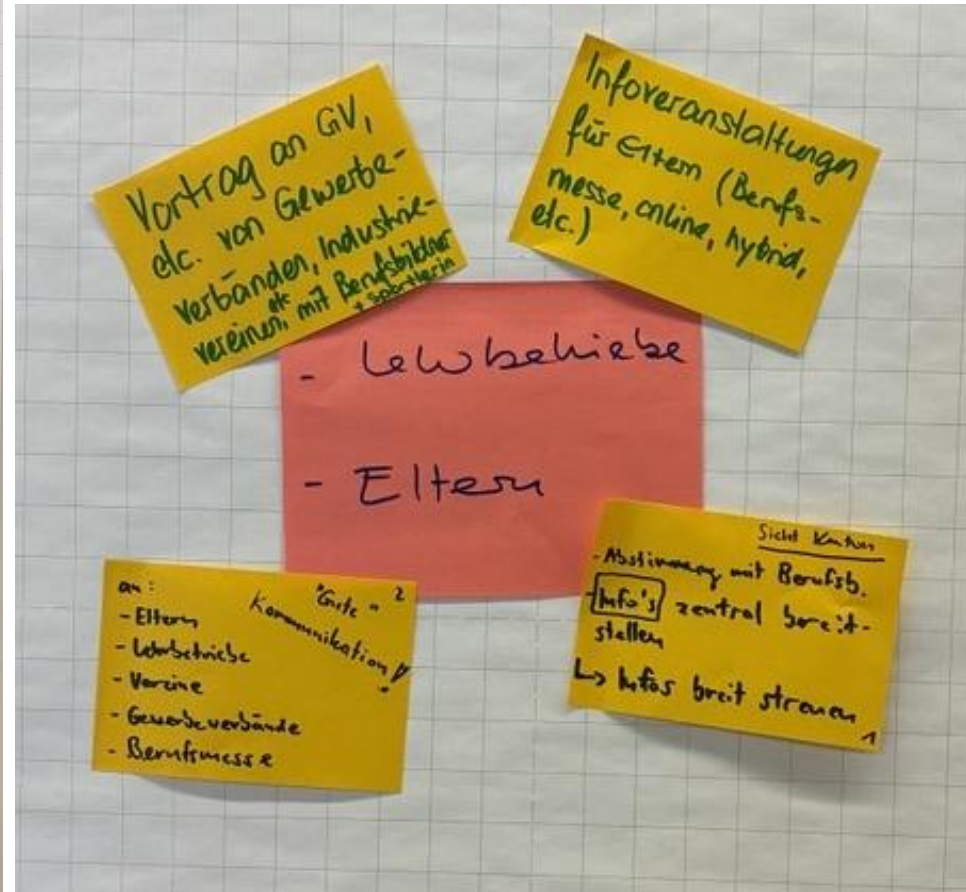 Vortrag an GV,
etc. von Gewerbe-
verbänden, Industrie-
vereinen, etc mit Berufsbildner
+ Sportlerin
Infoveranstaltungen
für Eltern (Berufs-
messe, online, hybrid,
etc.)
- Lehrbetriebe
- Eltern
an:
"Gute" 2
Kommunikation!
- Eltern
- Lehrbetriebe
- Vereine
- Gewerbeverbände
- Berufsmesse
Sicht Kanton
- Abstimmung mit Berufsb.
- Info's zentral bereit-
stellen
↳ Infos breit streuen
1